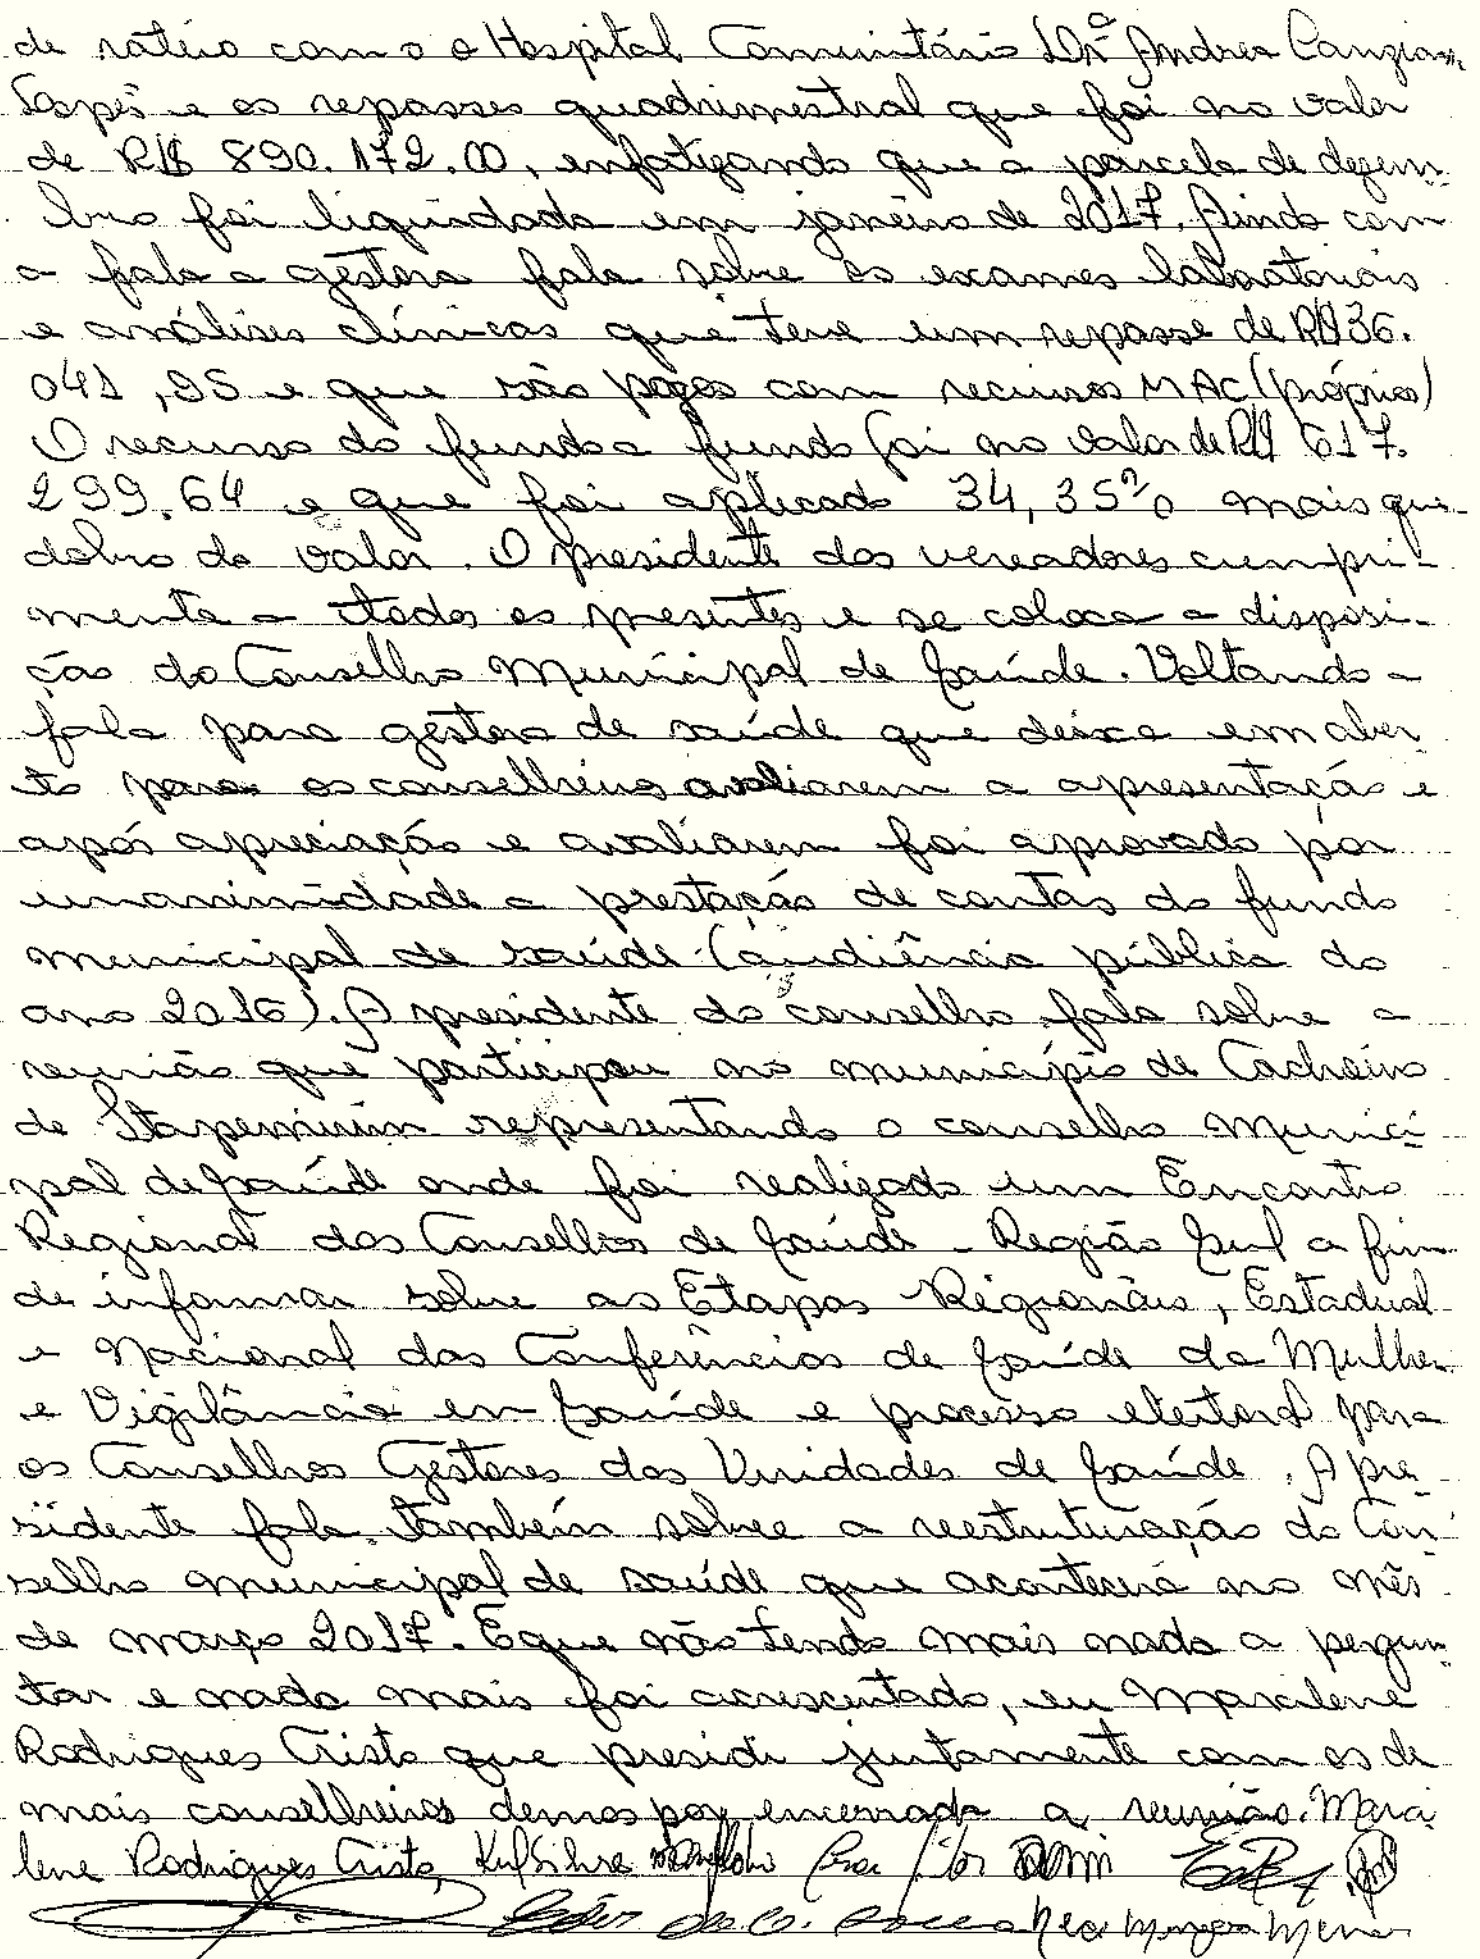 de ratéio com o o Hospital Comunitário Drª Andrea Canzian
Lopes e os repasses quadrimestral que foi no valor
de R$ 890.172.00, enfatizando que a parcela de dezem-
bro foi liquidada em janeiro de 2017. Ainda com
a fala a gestora fala sobre os exames laboratoriais
e análises clínicas que teve um repasse de R$ 36.
041,95 e que são pagos com recursos MAC (próprios)
O recurso do fundo a fundo foi no valor de R$ 617.
299.64 e que foi aplicado 34,35% mais que
dobro do valor. O presidente dos vereadores cumpri-
menta a todos os presentes e se coloca a disposi-
ção do Conselho Municipal de Saúde. Voltando a
fala para gestora de saúde que deixa em aber
to para os conselheiros avaliarem a apresentação e
após apreciação e avaliarem foi aprovado por
unanimidade a prestação de contas do fundo
municipal de saúde (audiência pública do
ano 2016). A presidente do conselho fala sobre a
reunião que participou no município de Cachoeiro
de Itapemirim representando o conselho Munici-
pal de Saúde onde foi realizado um Encontro
Regional dos Conselhos de Saúde - Região Sul a fim
de informar sobre as Etapas Regionais, Estadual
e Nacional das Conferências de Saúde da Mulher
e Vigilância em Saúde e processo eleitoral para
os Conselhos Gestores das Unidades de Saúde. A pre-
sidente fala também sobre a reestruturação do Con-
selho municipal de saúde que acontecerá no mês
de março 2017. E que não tendo mais nada a pergun-
tar e nada mais foi acrescentado, eu Maralene
Rodrigues Cristo que presidi juntamente com os de
mais conselheiros demos por encerrada a reunião. Mara
lene Rodrigues Cristo,